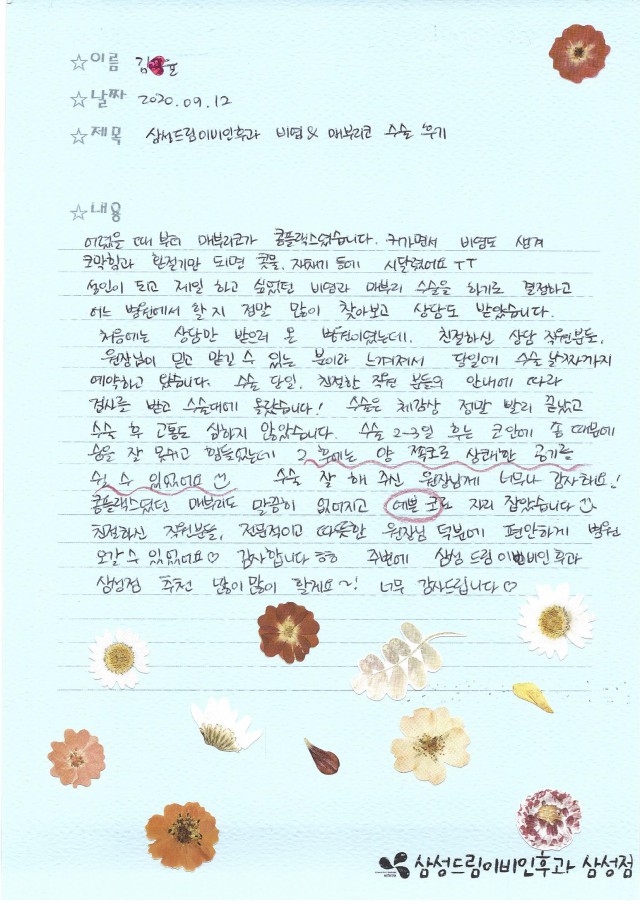 ☆이름 김 호
☆날짜 2020.09.12
☆제목 삼성드림이비인후과 비염 & 매부리코 수술 후기
☆내용
어렸을 때 부터 매부리코가 콤플랙스였습니다. 커가면서 비염도 생겨
코막힘과 환절기만 되면 콧물, 재채기 등에 시달렸어요 ㅜㅜ
성인이 되고 제일 하고 싶었던 비염과 매부리 수술을 하기로 결정하고
어느 병원에서 할 지 정말 많이 찾아보고 상담도 받았습니다.
처음에는 상담만 받으러 온 병원이였는데, 친절하신 상담 직원분들,
원장님이 믿고 맡길 수 있는 분이라 느껴져서 당일에 수술 날짜까지
예약하고 왔습니다. 수술 당일, 친절한 직원 분들의 안내에 따라
검사를 받고 수술대에 올랐습니다! 수술은 체감상 정말 빨리 끝났고
수술 후 고통도 심하지 않았습니다. 수술 2-3일 후는 코안에 솜 때문에
숨을 잘 못쉬고 힘들었는데 그 후에는 양 쪽코로 상쾌한 공기를
쉴 수 있었어요 수술 잘 해 주신 원장님께 너무나 감사해요!
콤플랙스였던 매부리도 말끔히 없어지고 예쁜 코로 자리 잡았습니다
친절하신 직원분들, 전문적이고 따뜻한 원장님 덕분에 편안하게 병원
오갈 수 있었어요♡ 감사합니다 ㅎㅎ 주변에 삼성 드림 이비인후과
삼성점 추천 많이많이 할게요~! 너무 감사드립니다♡
삼성드림이비인후과 삼성점